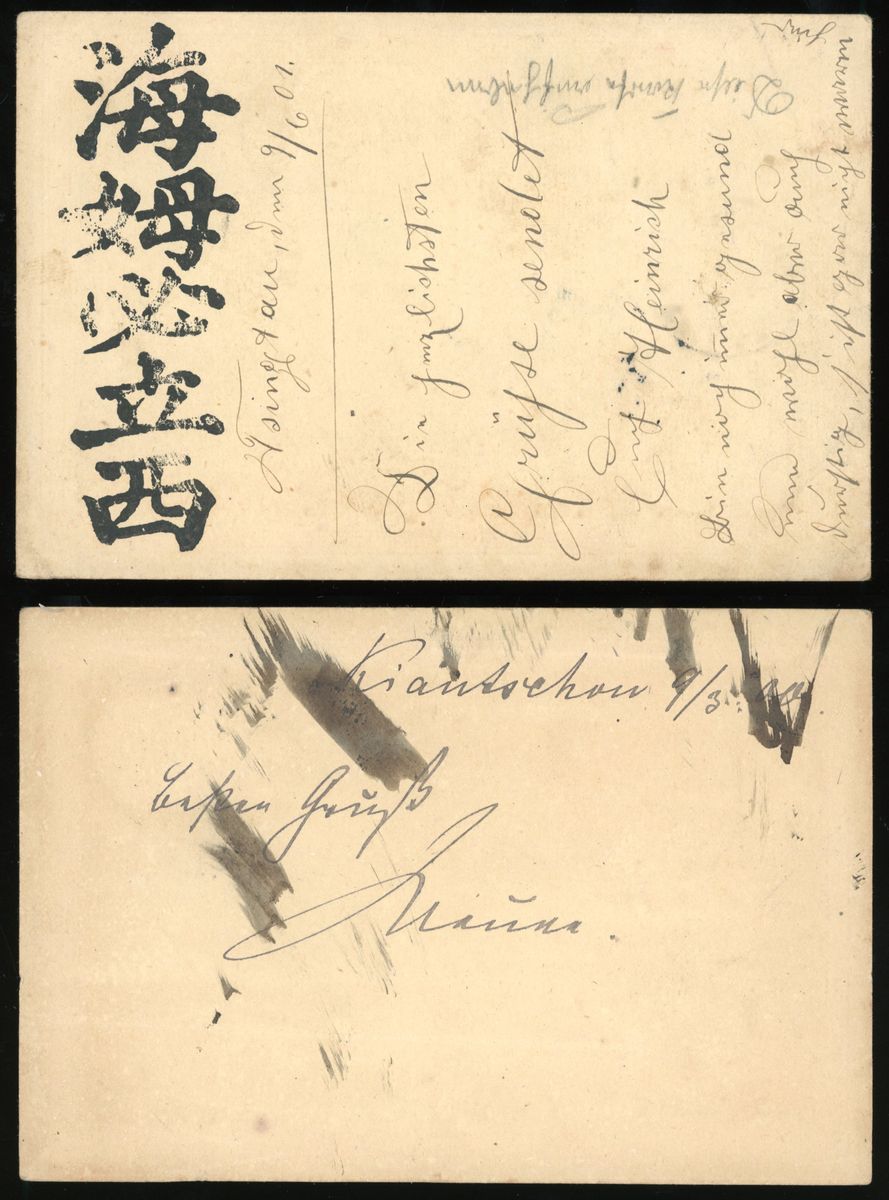 海姆必立西
Tsingtau, den 9/6 01.
Die herzlichsten
Grüße sendet
Euch Heinrich
Bin noch immer gesund
und wohl aber auch
durstig,
Diese Karte aufheben
Kiautschou 9/3.
Besten Gruß